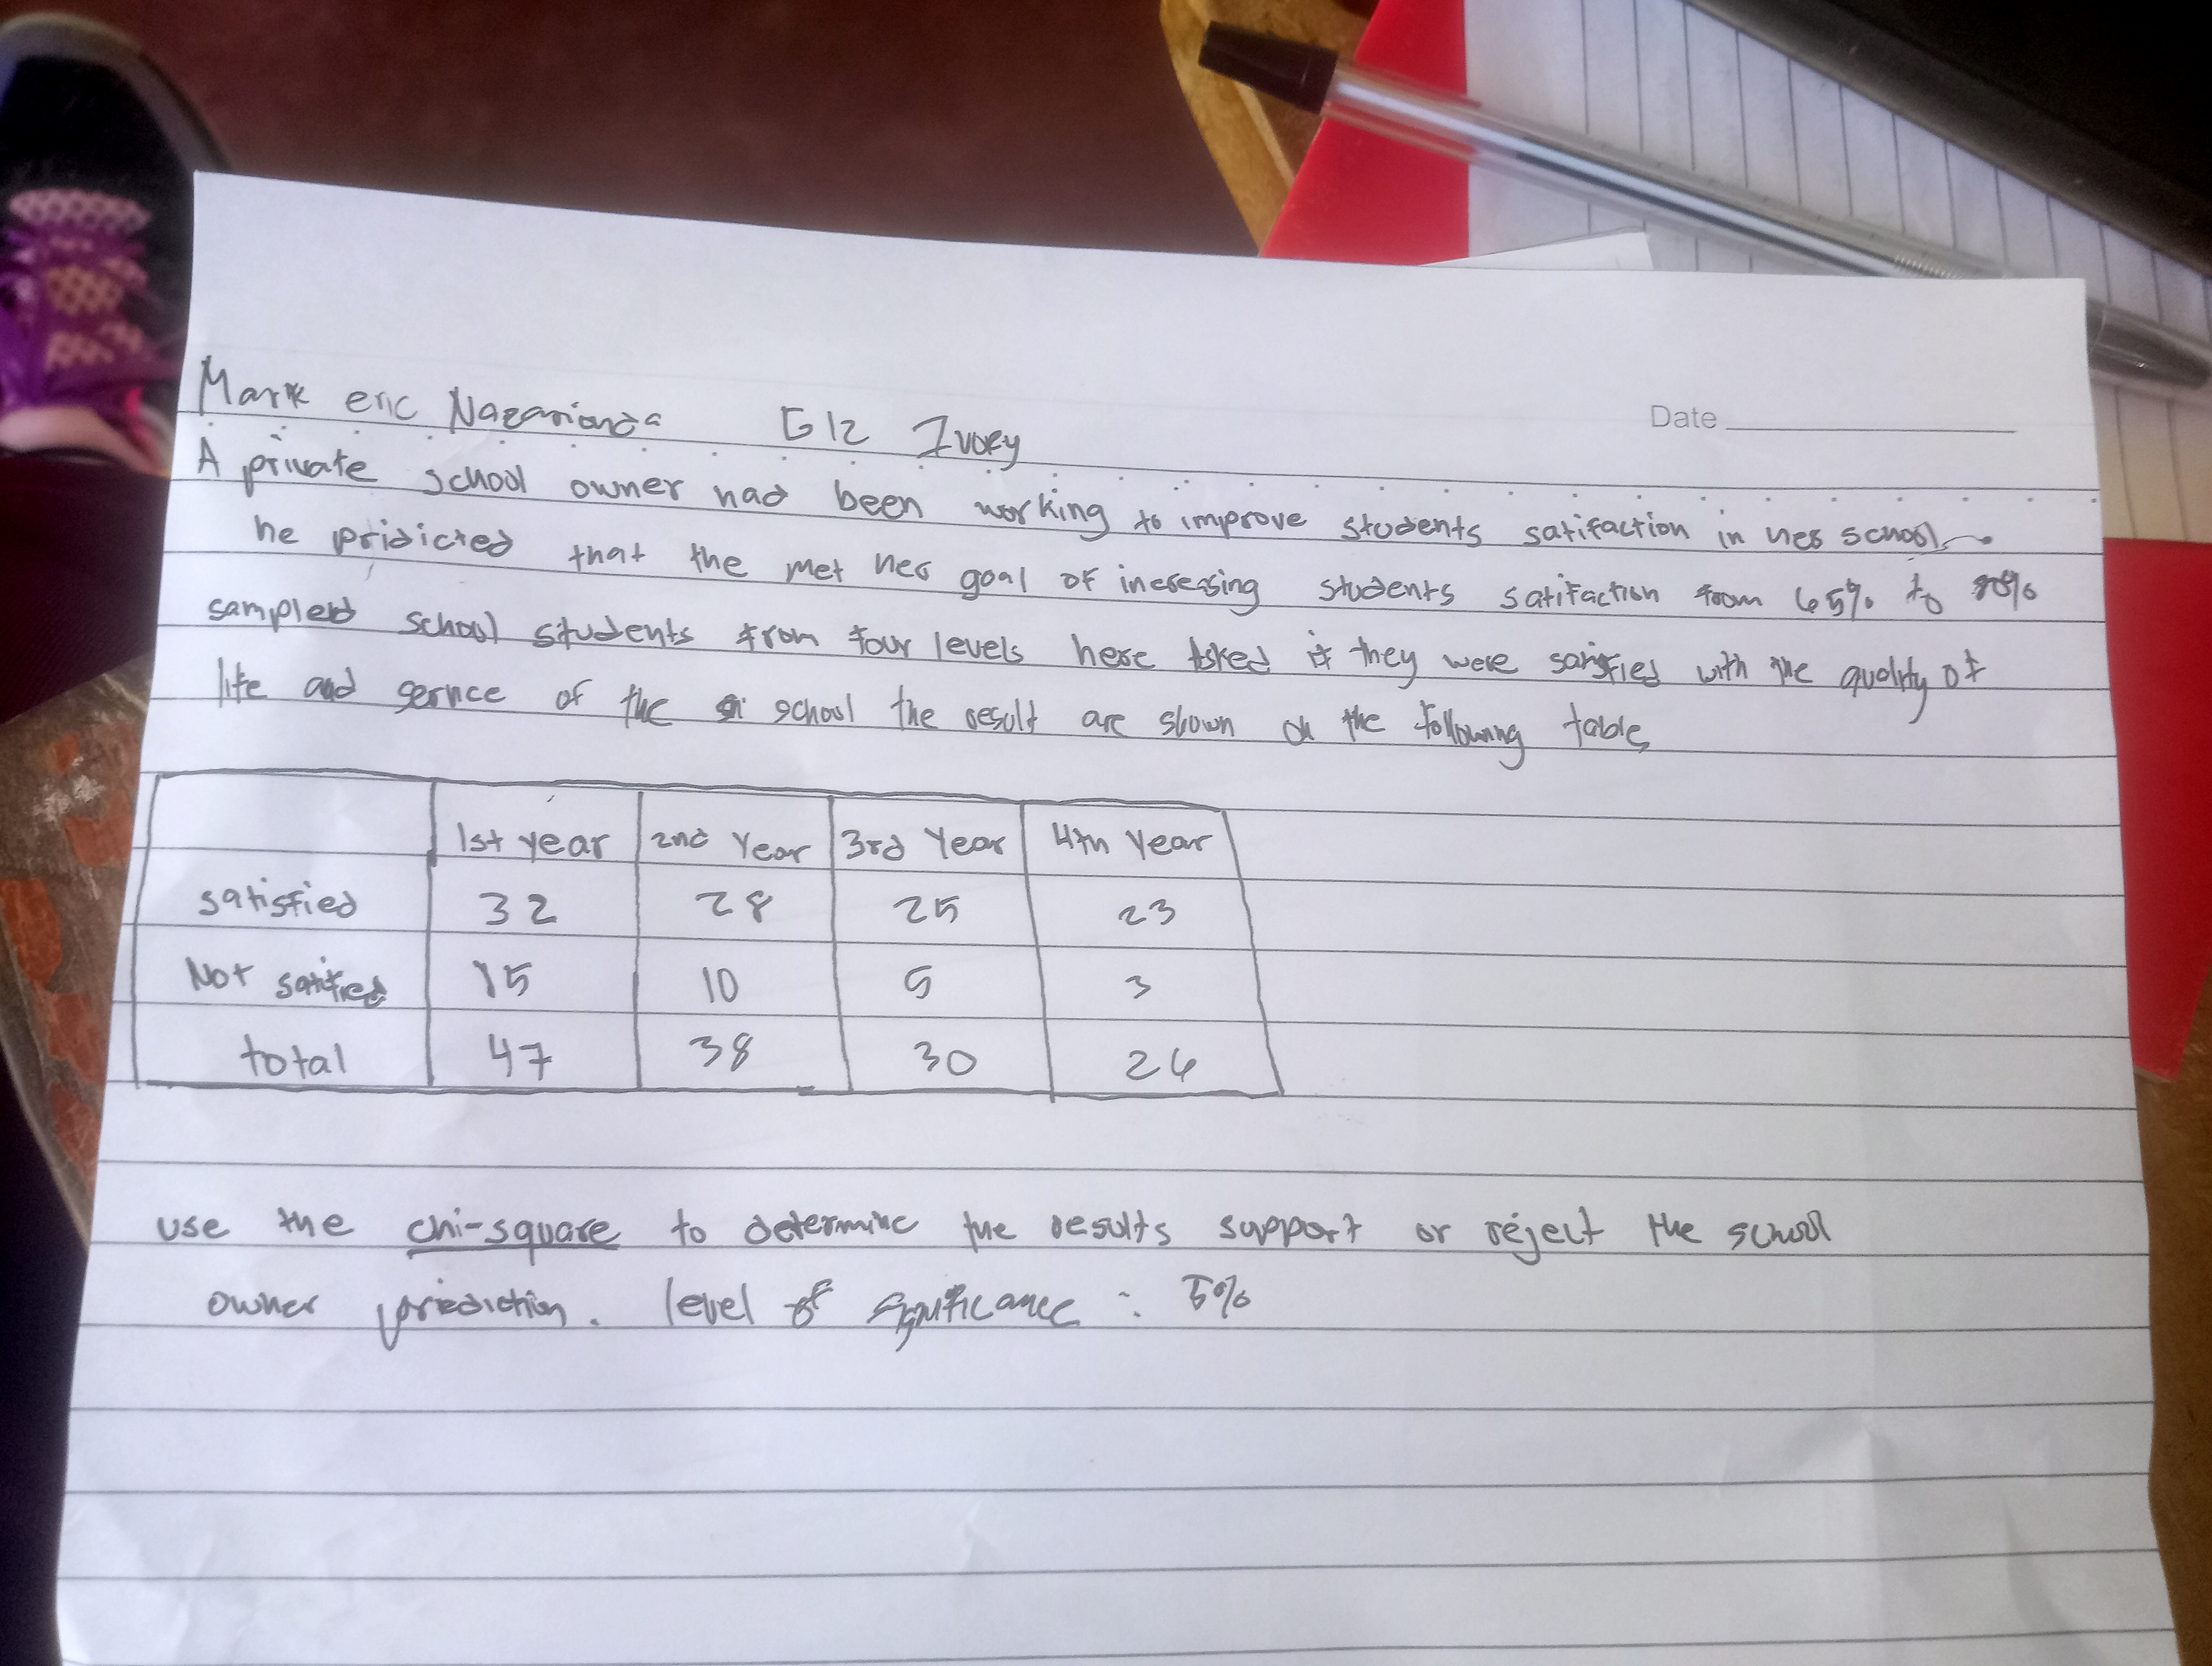 Mark eric Nazarionda G12 Ivory
Date
A private school owner had been working to improve students satifaction in hes school
he pridicted that the met hes goal of incresing students satifaction from 65% to
sampled school students from four levels here Asked if they were satisfied with the quality of
life and service of the school the result are shown on the following table
1st year 2nd Year 3rd Year 4th Year
satisfied 32 28 25 23
Not satified 15 10 5 3
total 47 38 30 26
use the chi-square to determine the results support or reject the school
owner prediction. level of significance : 5%